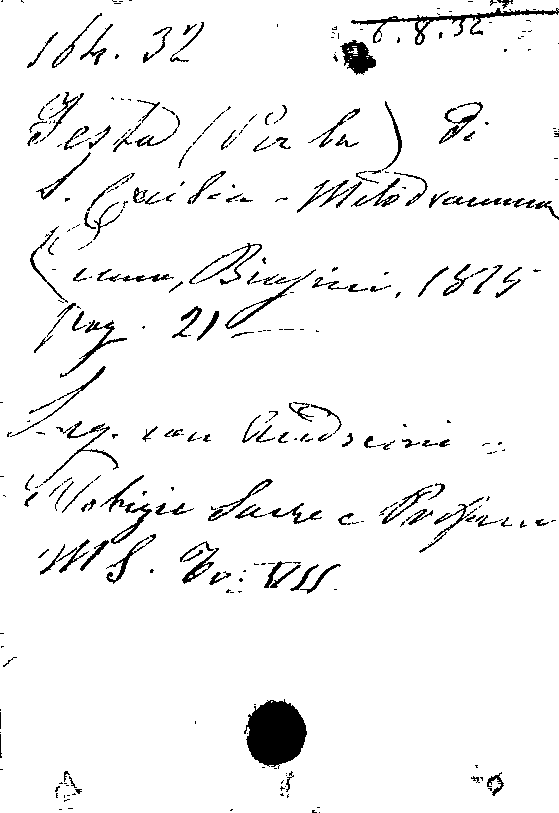 6.8.32
164. 32
Festa (Per la) di
S. Cecilia - Melodramma
Biagini, 1875
pag. 21
Leg. con Andreini =
Notizie Sacre e Profane
MS. To: VII